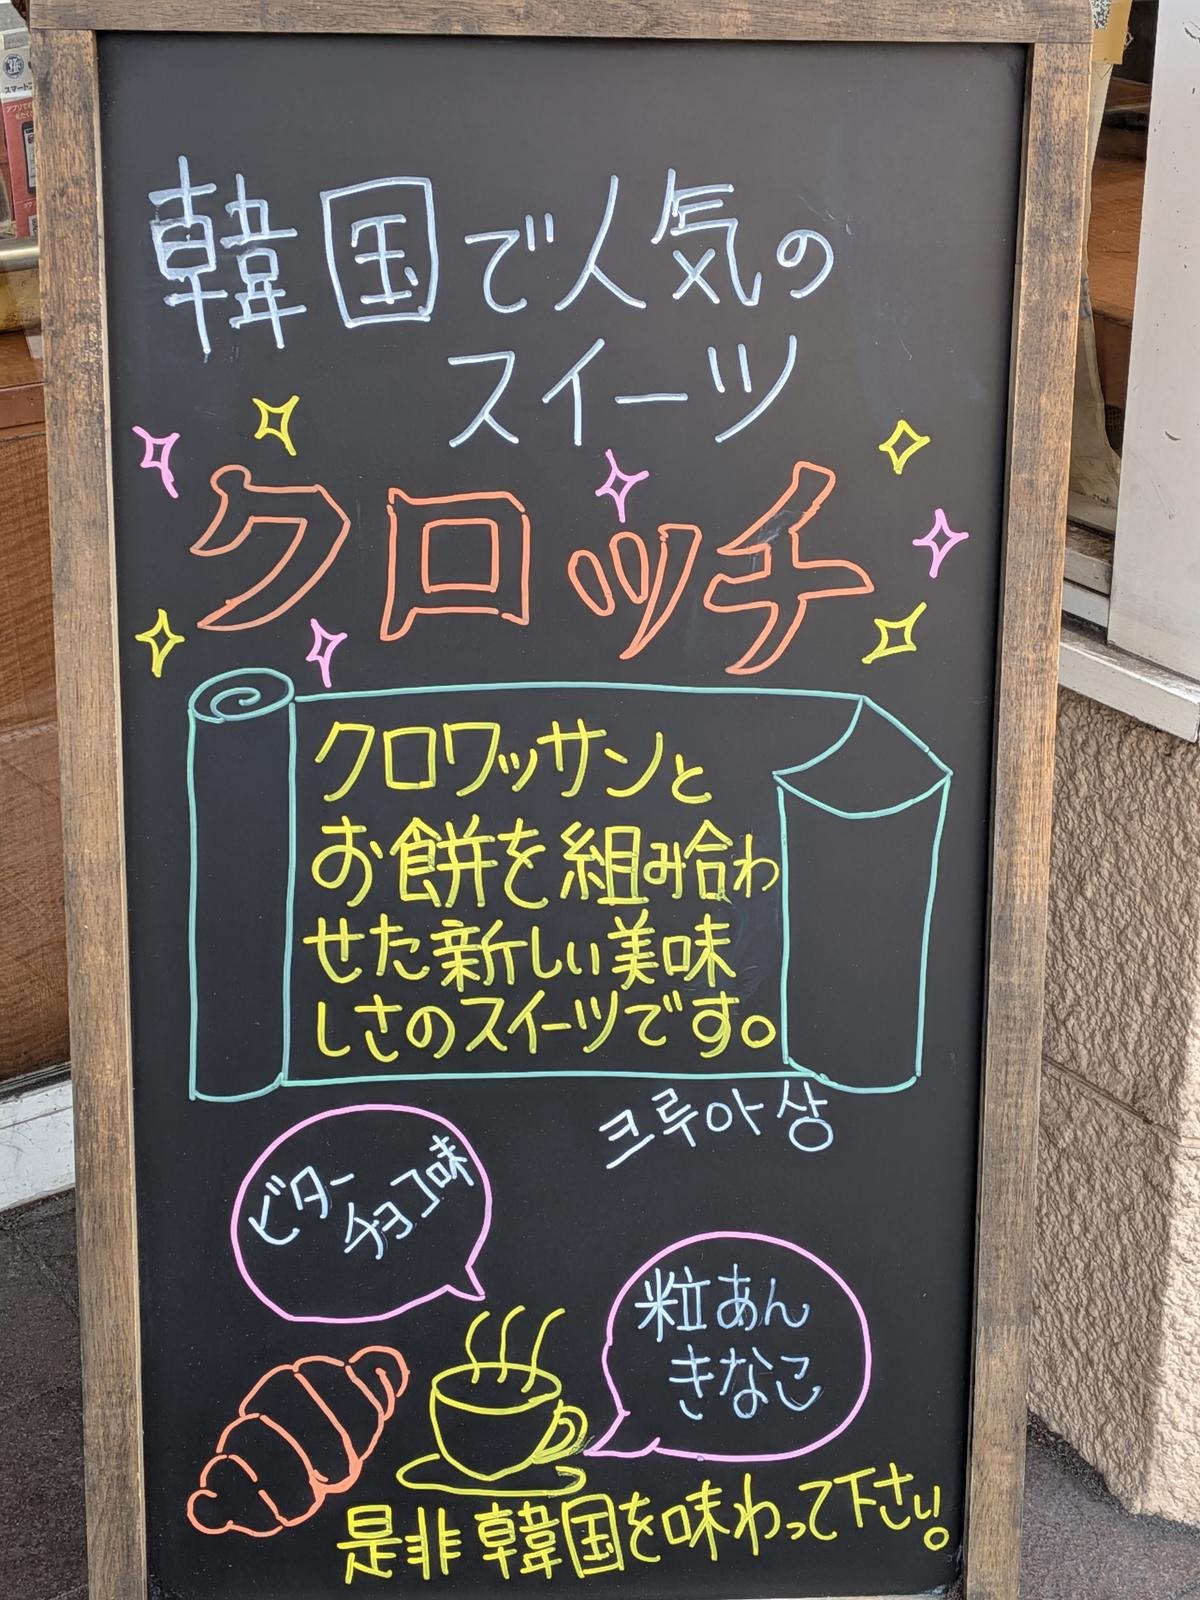 韓国で人気の
スイーツ
クロッチ
クロワッサンと
お餅を組み合わ
せた新しい美味
しさのスイーツです。
크루아상
ビター
チョコ味
粒あん
きなこ
是非韓国を味わって下さい。